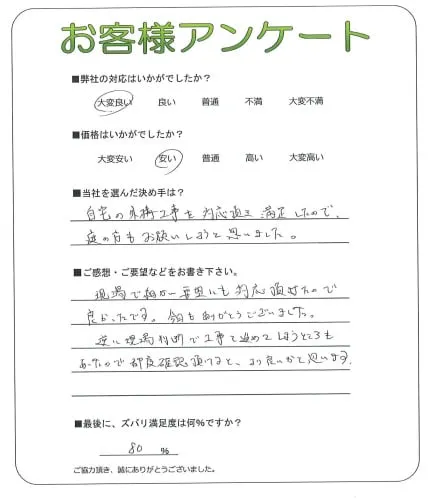 お客様アンケート
■弊社の対応はいかがでしたか？
大変良い 良い 普通 不満 大変不満
■価格はいかがでしたか？
大変安い 安い 普通 高い 大変高い
■当社を選んだ決め手は？
自宅の外構工事を対応頂き満足したので、
庭の方もお願いしようと思いました。
■ご感想・ご要望などをお書き下さい。
現場で細かい要望にも対応頂けたので
良かったです。今回もありがとうございました。
逆に現場判断で工事を進めてしまうところも
あったので都度確認頂けると、より良いかと思います。
■最後に、ズバリ満足度は何％ですか？
80 %
ご協力頂き、誠にありがとうございました。